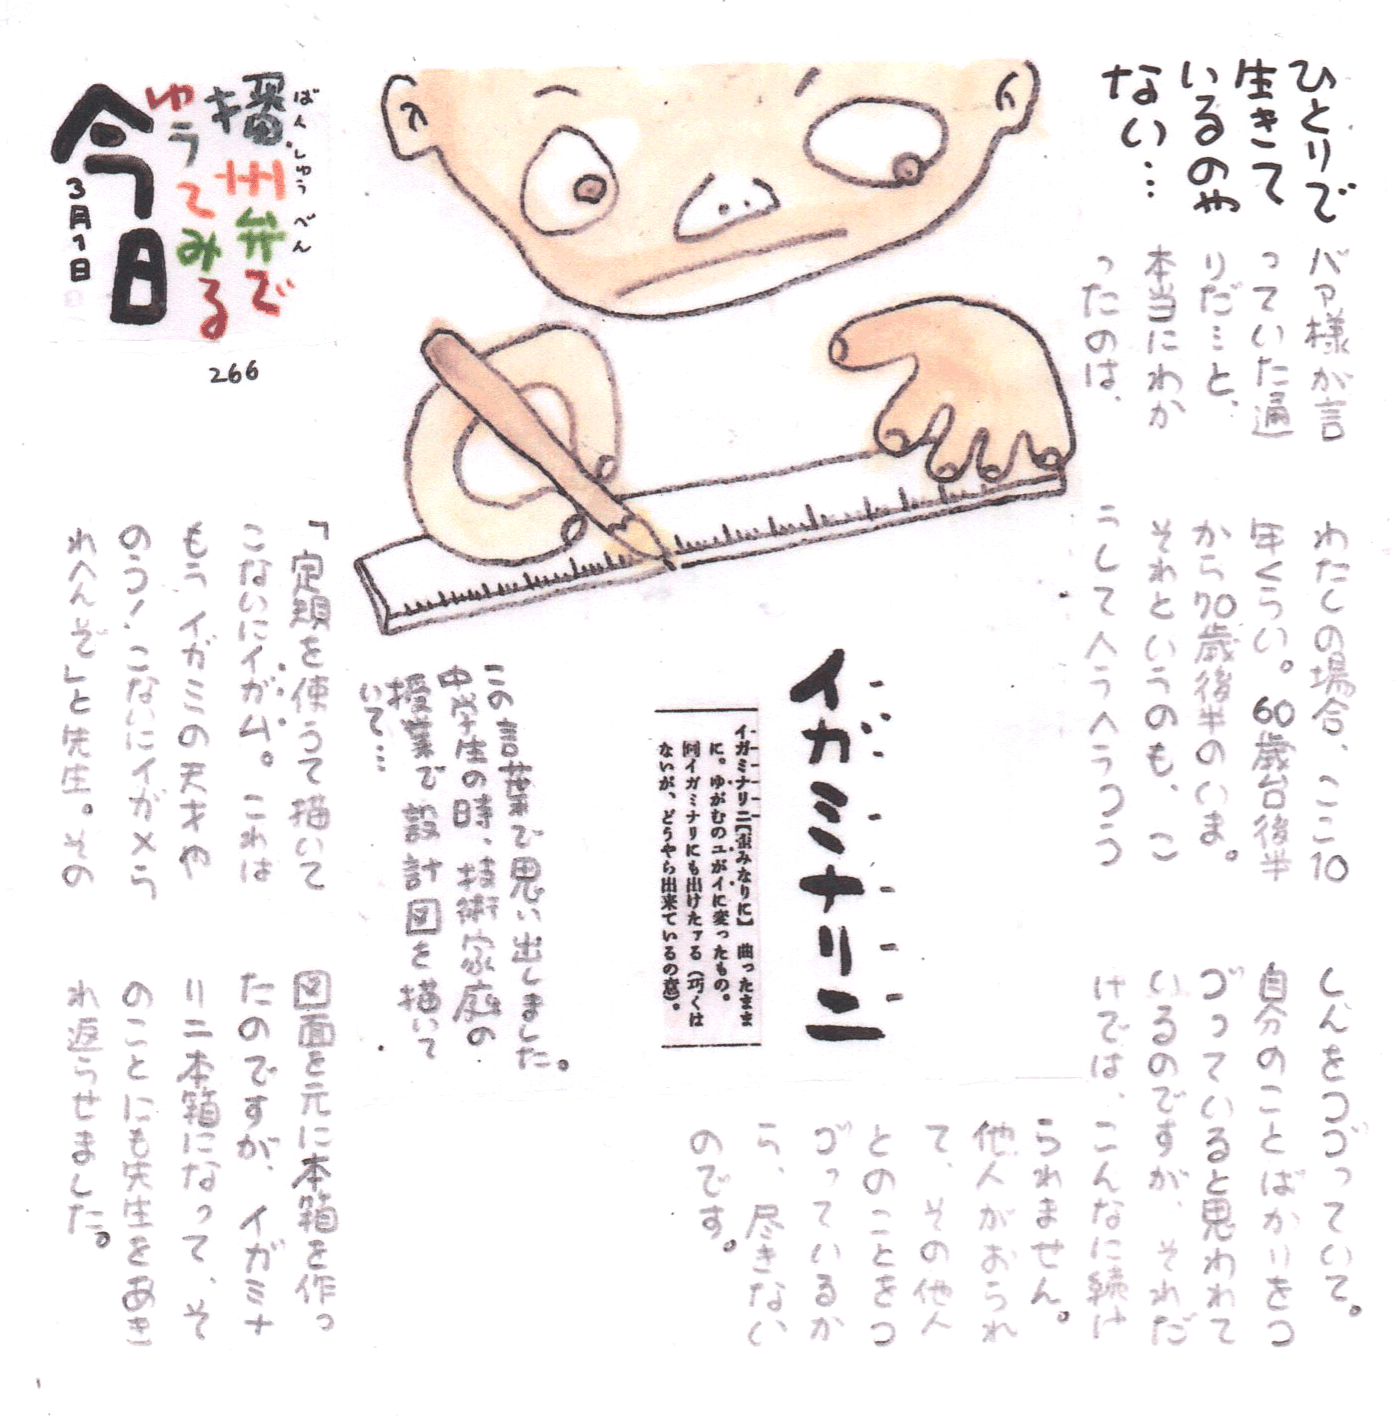 ひとりで
生きて
いるのや
ない…
バァ様が言
っていた通
りだ…と、
本当にわか
ったのは、
わたしの場合、ここ10
年くらい。60歳台後半
から70歳後半のいま。
それというのも、こ
うしてヘラヘラつつ
しんをつづっていて。
自分のことばかりをつ
づっていると思われて
いるのですが、それだ
けでは、こんなに続け
られません。
他人がおられ
て、その他人
とのことをつ
づっているか
ら、尽きない
のです。
イガミナリニ
イガミナリニ【歪みなりに】 曲ったまま
に。ゆがむのユがイに変ったもの。
同イガミナリにも出けたァる（巧くは
ないが、どうやら出来ているの意）。
この言葉で思い出しました。
中学生の時、技術家庭の
授業で設計図を描いて
いて…
「定規を使うて描いて
こないにイガム。これは
もう イガミの天才や
のう！こないにイガメら
れへんぞ」と先生。その
図面を元に本箱を作っ
たのですが、イガミナ
リニ本箱になって、そ
のことにも先生をあき
れ返らせました。
ばんしゅうべん
播州弁で
ゆうてみる
今日
3月1日
266